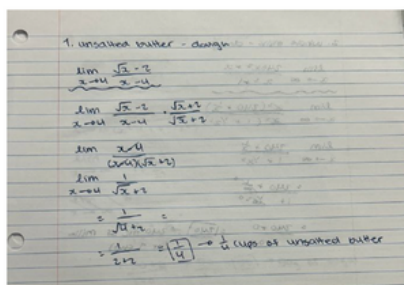 1. unsalted butter - dough
lim x→4 √x - 2 / x - 4
lim x→4 √x - 2 / x - 4 · √x + 2 / √x + 2
lim x - 4 / (x-4)(√x + 2)
lim x→4 1 / √x + 2
= 1 / √4 + 2 =
= 1 / 2+2 = 1/4 → 1/4 cups of unsalted butter